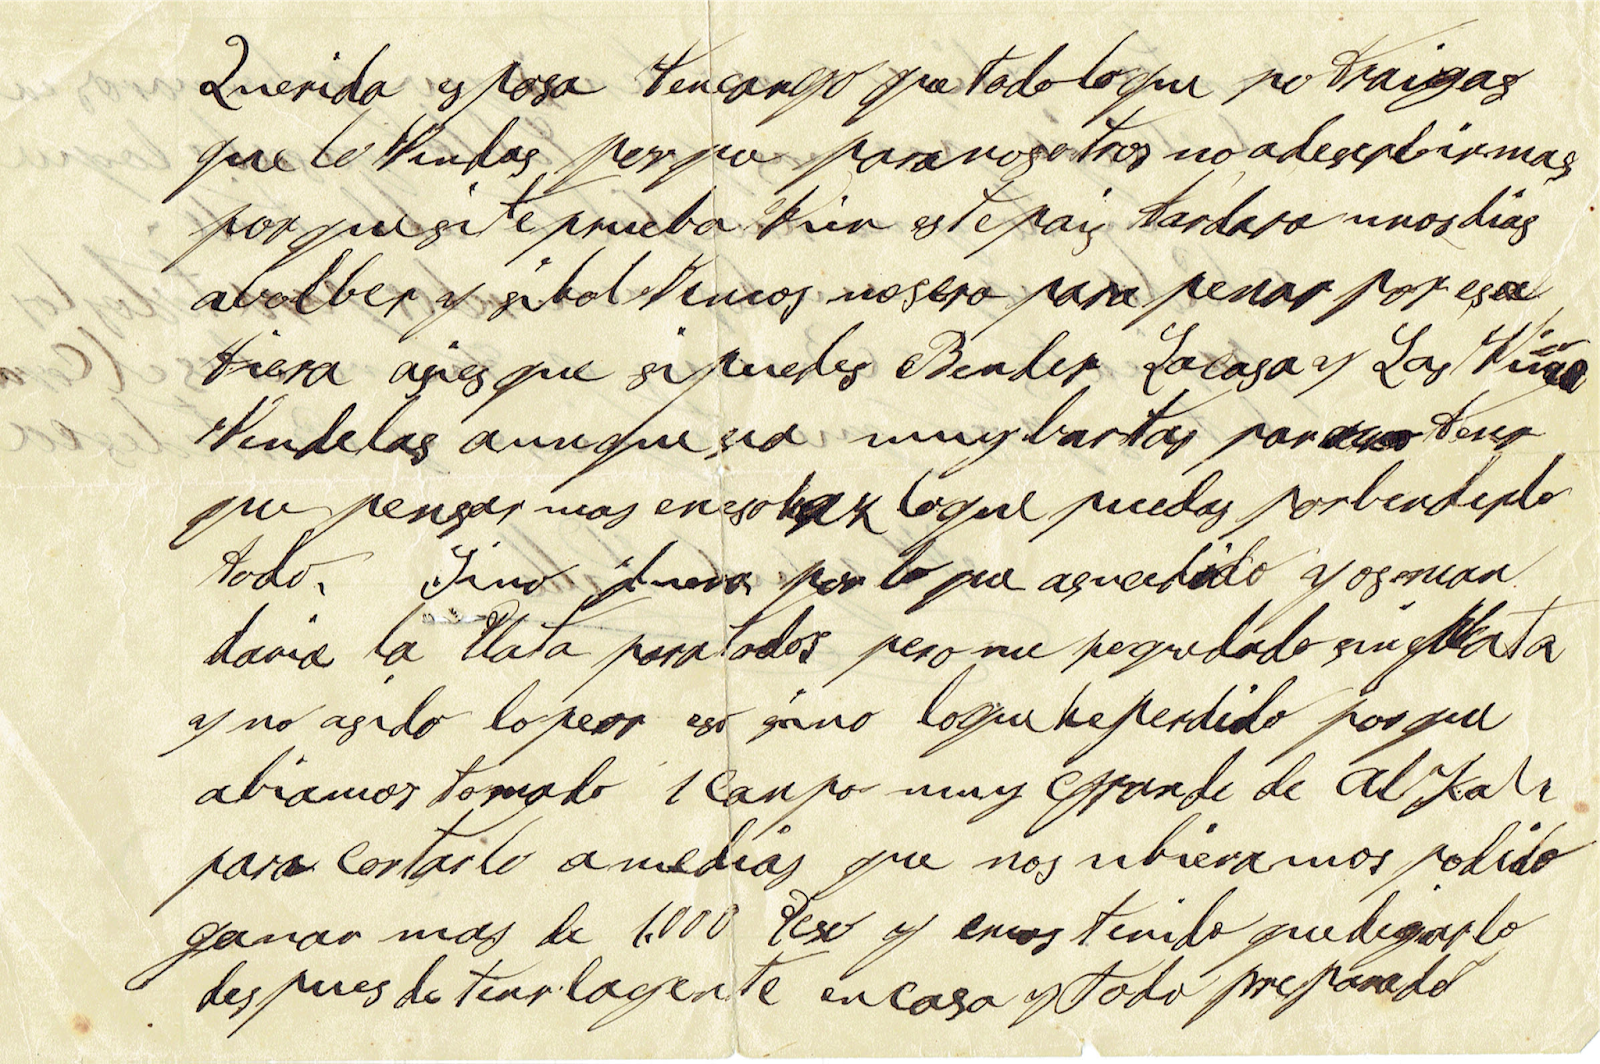 Querida esposa tencargo que todo loque no traigas
que lo Vendas porque para nosotros no adeserbir mas
por que si te prueba Vien este pais tardara unos dias
abolber y si bolVemos nosera para penar por esa
tiera asies que si puedes Bender La casa y Las Viñas
Vendelas aunque sea muy bartas para no tener
que pensar mas en eso haz loque puedas por benderlo
todo. Sino fuera por lo que asucedido yos man
daria la Plata para todos pero me pequedado sin plata
y no asido lo peor eso sino loque he perdido por que
abiamos tomado 1 canpo muy Grande de Al
para cortarlo a medias que nos ubieramos podido
ganar mas de 1.000 Peso y emos tenido que degarlo
despues de tener lagente en casa y todo preparado